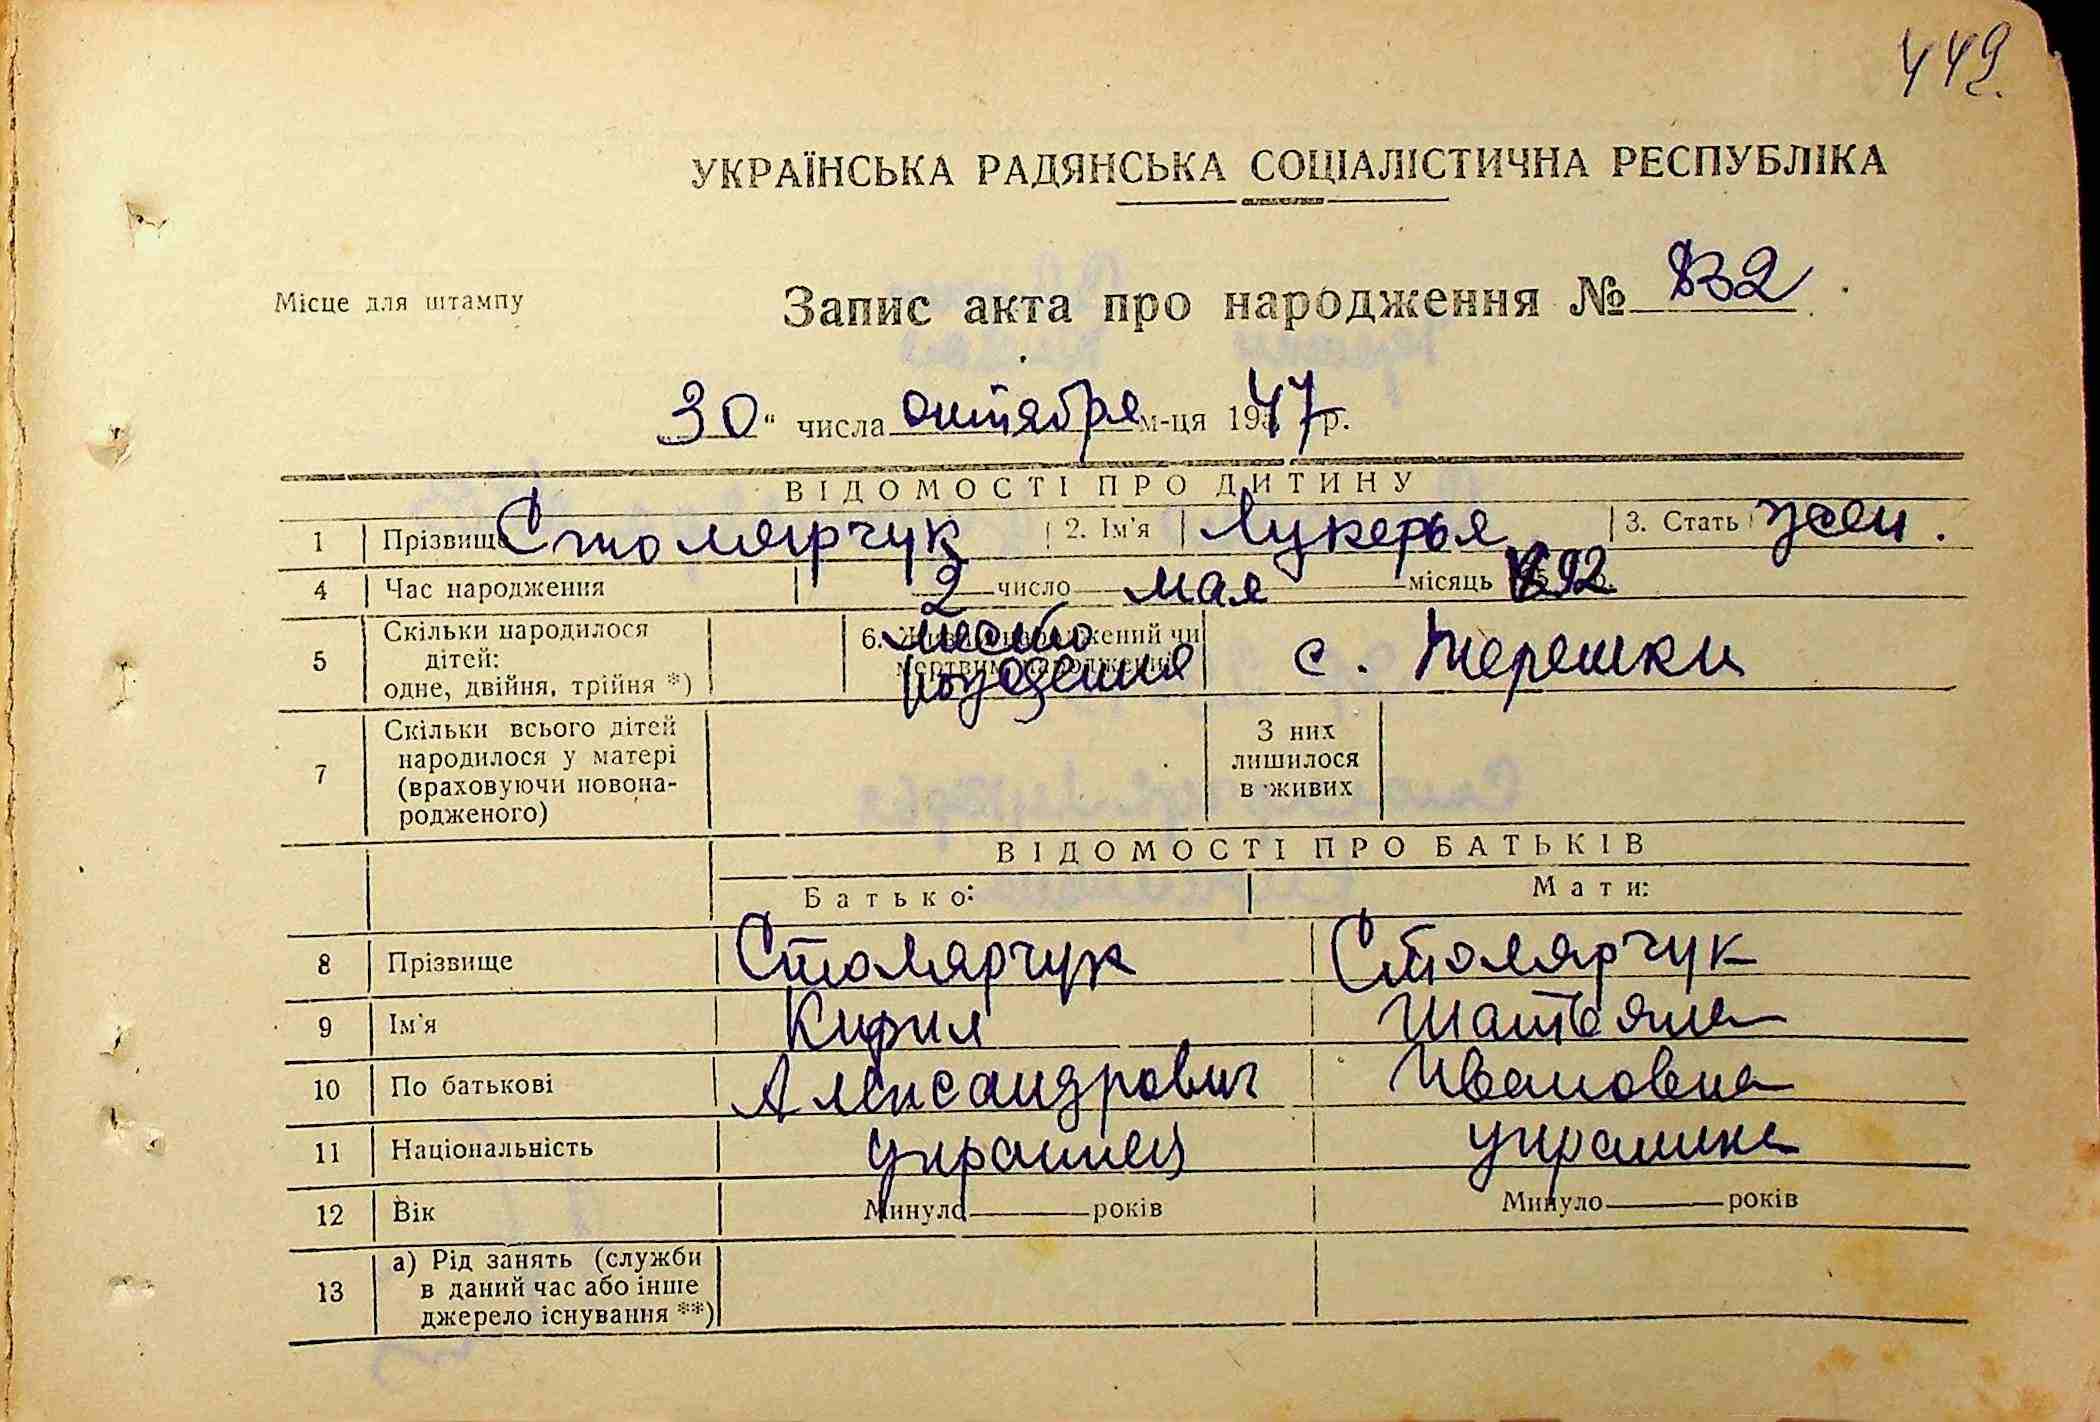 449.
УКРАЇНСЬКА РАДЯНСЬКА СОЦІАЛІСТИЧНА РЕСПУБЛІКА
Місце для штампу
Запис акта про народження № 832
30 " числа октября м-ця 1947 р.
ВІДОМОСТІ ПРО ДИТИНУ
1 Прізвище Столярчук 2. Ім'я Лукерья 3. Стать жен.
4 Час народження 2 число мая місяць 892
5 Скільки народилося дітей: одне, двійня, трійня *) 6. Живим народжений чи мертвим народжений место рождения с. Терешки
7 Скільки всього дітей народилося у матері (враховуючи новонародженого) З них лишилося в живих
ВІДОМОСТІ ПРО БАТЬКІВ
Батько: Мати:
8 Прізвище Столярчук Столярчук
9 Ім'я Кирил Татьяна
10 По батькові Александрович Ивановна
11 Національність украинец украинка
12 Вік Минуло років Минуло років
13 а) Рід занять (служби в даний час або інше джерело існування **)